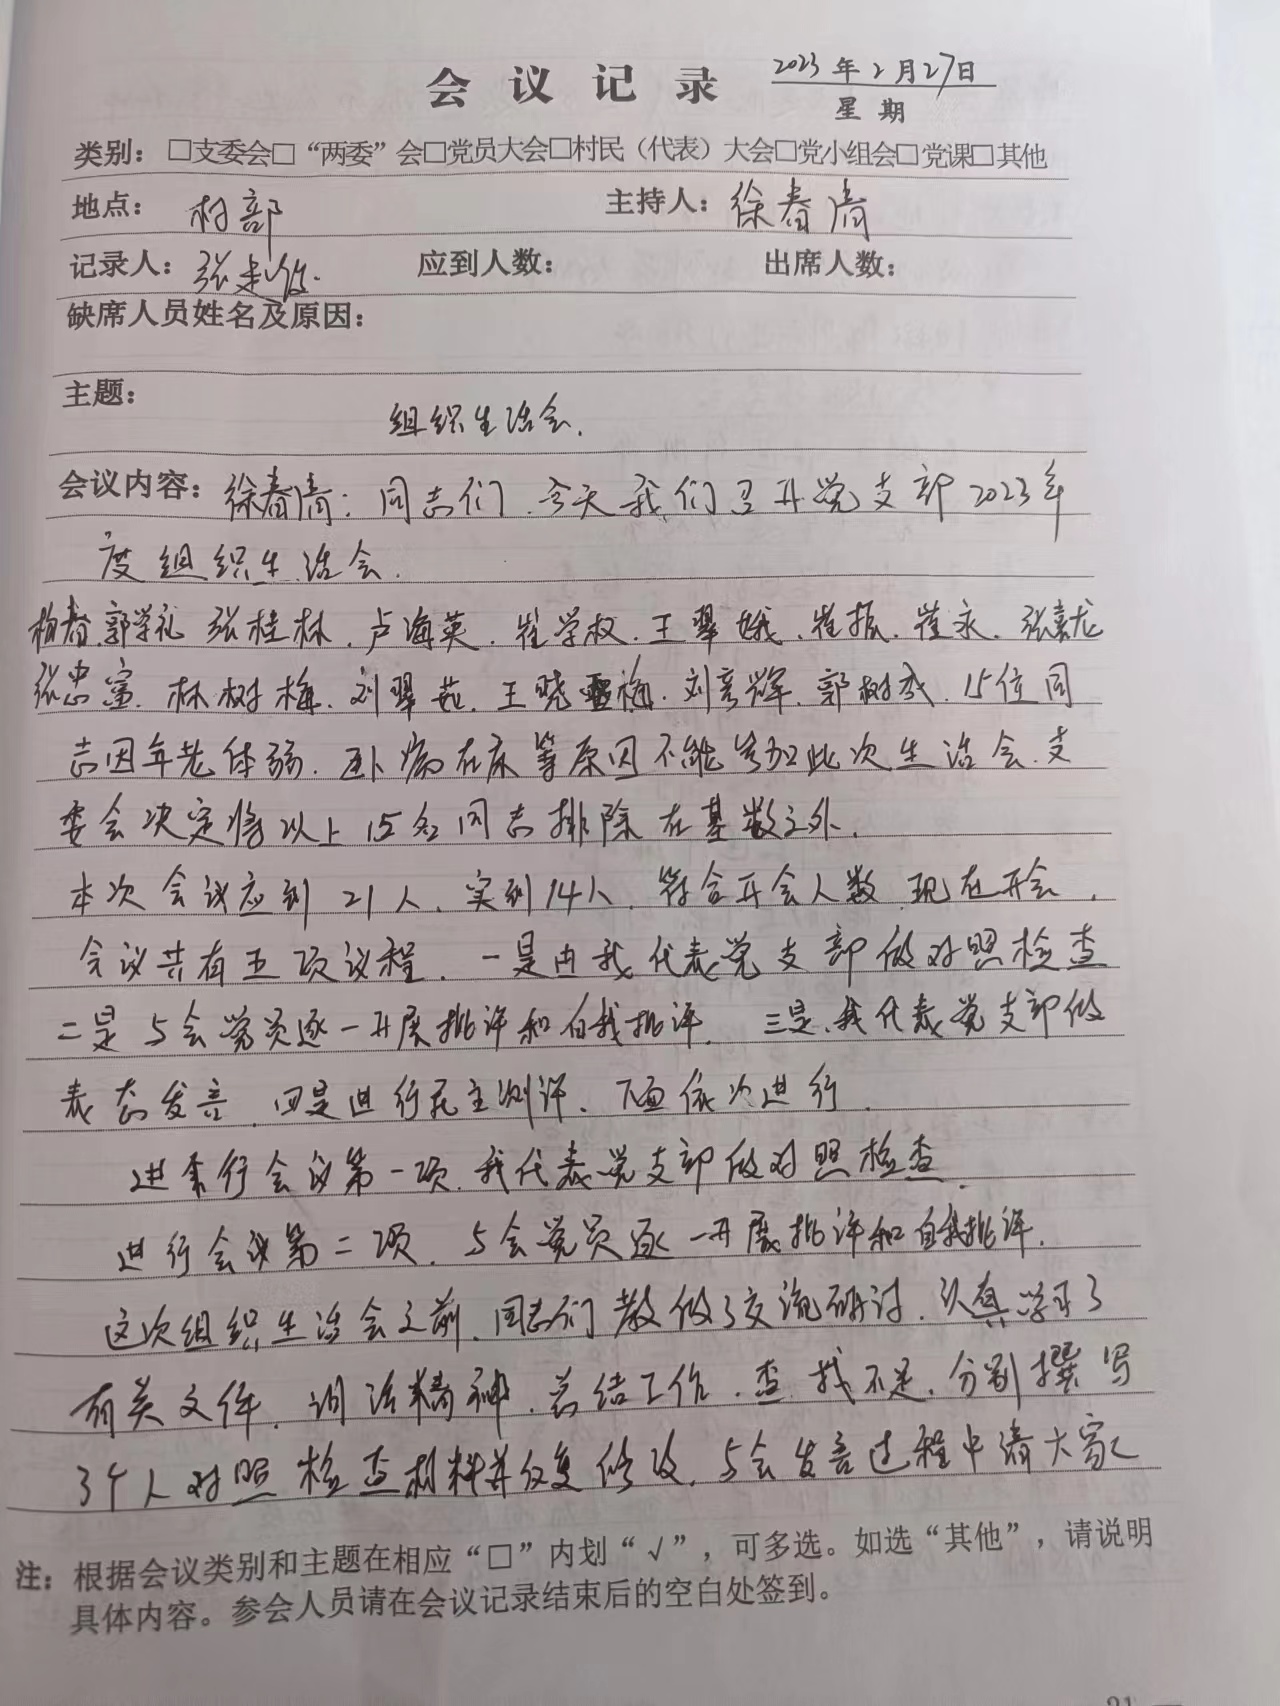 会议记录 2023年2月27日
星期
类别：□支委会□“两委”会□党员大会□村民（代表）大会□党小组会□党课□其他
地点： 村部 主持人：徐春清
记录人：张 应到人数： 出席人数：
缺席人员姓名及原因：
主题：
组织生活会.
会议内容：徐春清：同志们.今天我们召开党支部2023年
度组织生活会.
郭学礼 张桂林.卢海英.崔学权.王翠娥.崔振.崔永.张嘉龙
张忠富.林树梅.刘翠苑.王晓雪梅.刘彦辉.郭树成.15位同
志因年老体弱.卧病在床等原因不能参加此次生活会.支
委会决定将以上15名同志排除在基数之外.
本次会议应到21人.实到14人.符合开会人数.现在开会.
会议共有五项议程.一是由我代表党支部做对照检查
二是与会党员逐一开展批评和自我批评.三是.我代表党支部做
表态发言.四是进行民主测评.下面依次进行.
进行会议第一项.我代表党支部做对照检查.
进行会议第二项.与会党员逐一开展批评和自我批评.
这次组织生活会之前.同志们都做了交流研讨.认真学习了
有关文件.领会精神.总结工作.查找不足.分别撰写
了个人对照检查材料并反复修改.与会发言过程中请大家
注：根据会议类别和主题在相应“□”内划“√”，可多选。如选“其他”，请说明
具体内容。参会人员请在会议记录结束后的空白处签到。